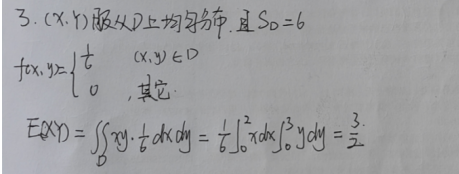 3. (X,Y)服从D上均匀分布,且S_D=6
f(x,y)={1/6 (x,y)∈D
0 ,其它.
E(XY)=∬_D xy·1/6 dxdy=1/6∫_0^2 xdx∫_0^3 ydy=3/2.